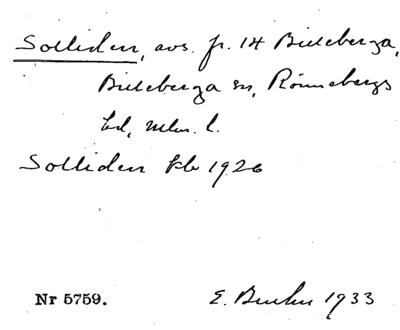 Solliden, avs. fr. 14 Billeberga,
Billeberga sn, Rönnebergs
hd, Mlm. l.
Solliden Pb 1926
Nr 5759.
E. 1933